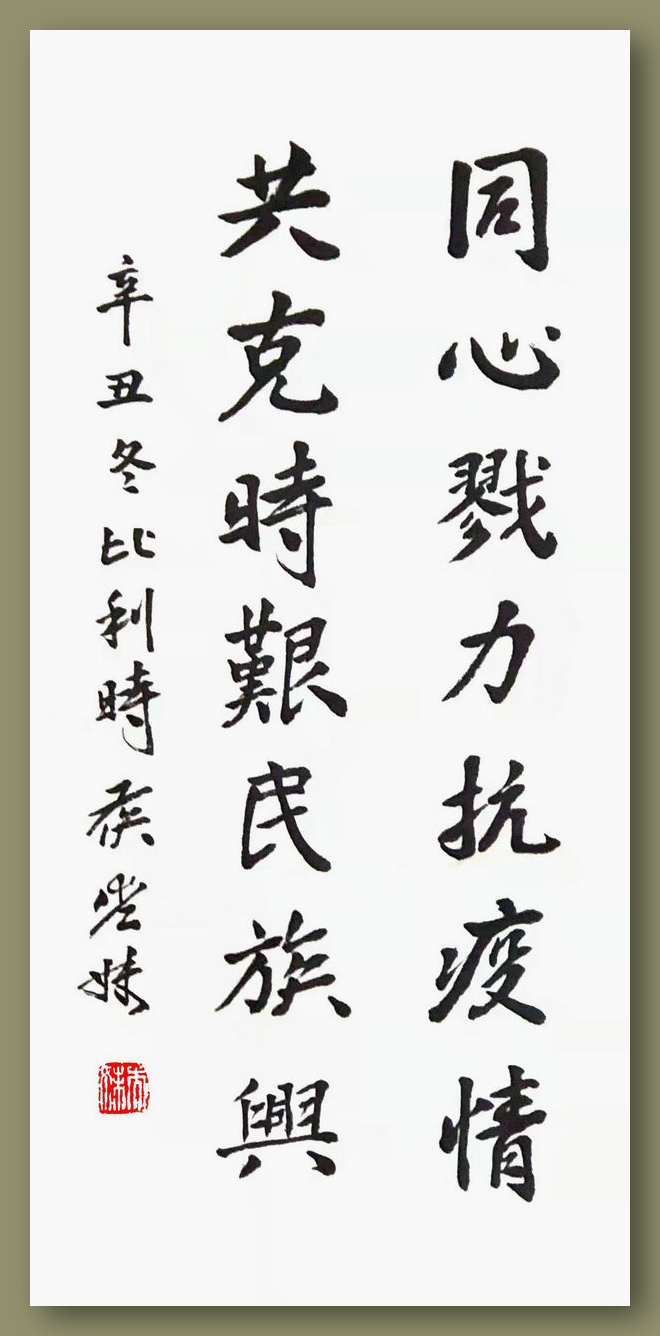 同心戮力抗疫情
共克時艱民族興
辛丑冬比利時侯妹